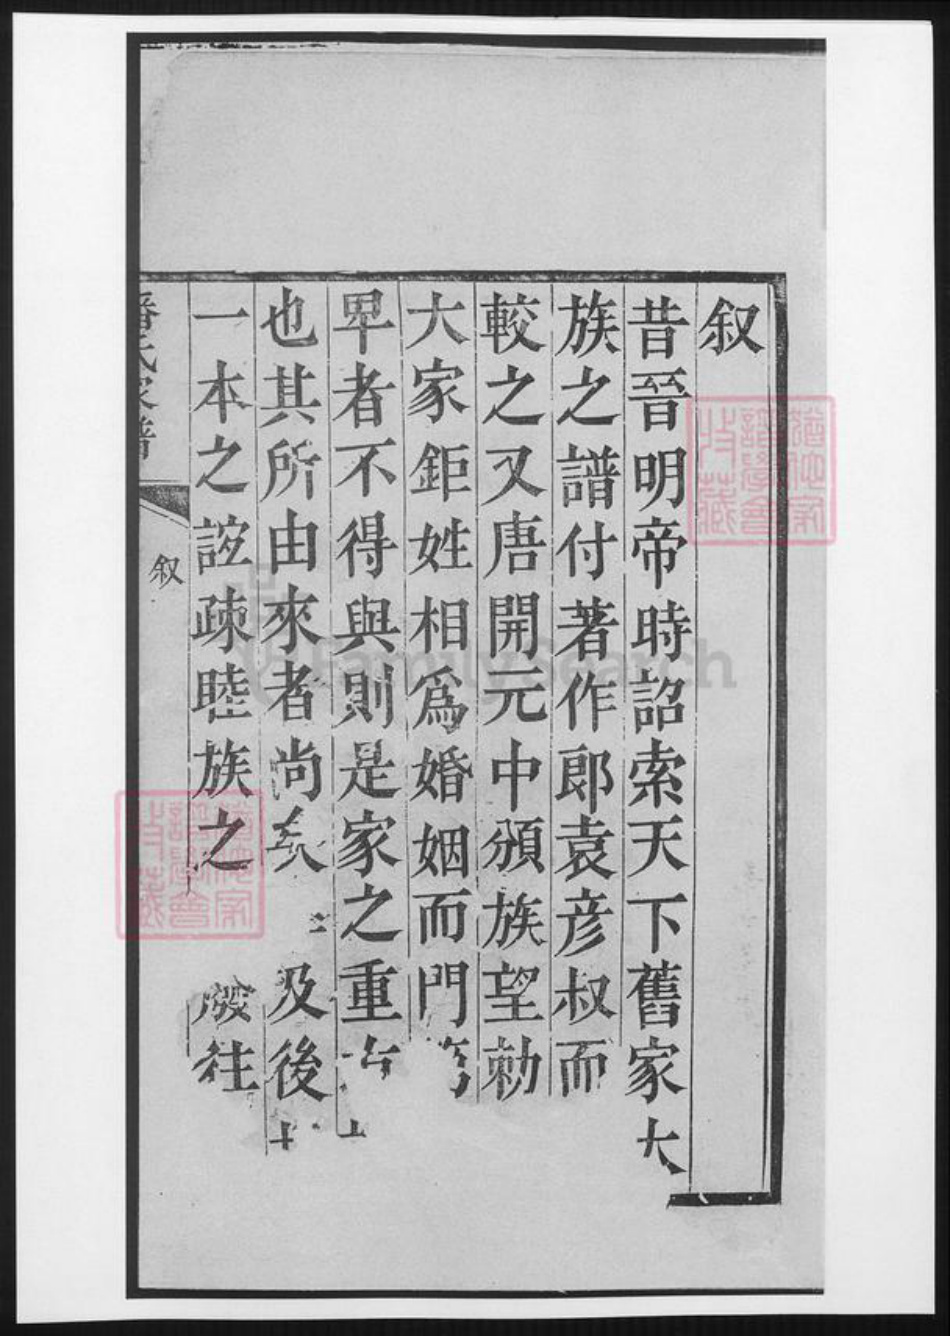 叙
昔晉明帝時詔索天下舊家大
族之譜付著作郎袁彦叔而
較之又唐開元中頒族望勅
大家鉅姓相爲婚姻而門
卑者不得與則是家之重
也其所由來者尚矣 及後
一本之誼疎睦族之 廢往
潘氏家譜
叙
FamilySearch